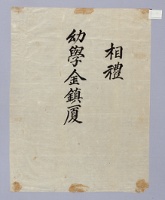 相禮
幼學金鎮厦